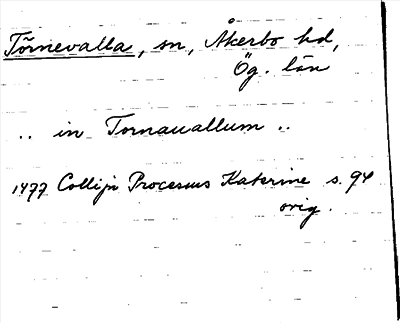 Törnevalla, sn, Åkerbo hd,
Ög. län
.. in Tornauallum ..
1477 Collijn Processus Katerine s. 94
orig.